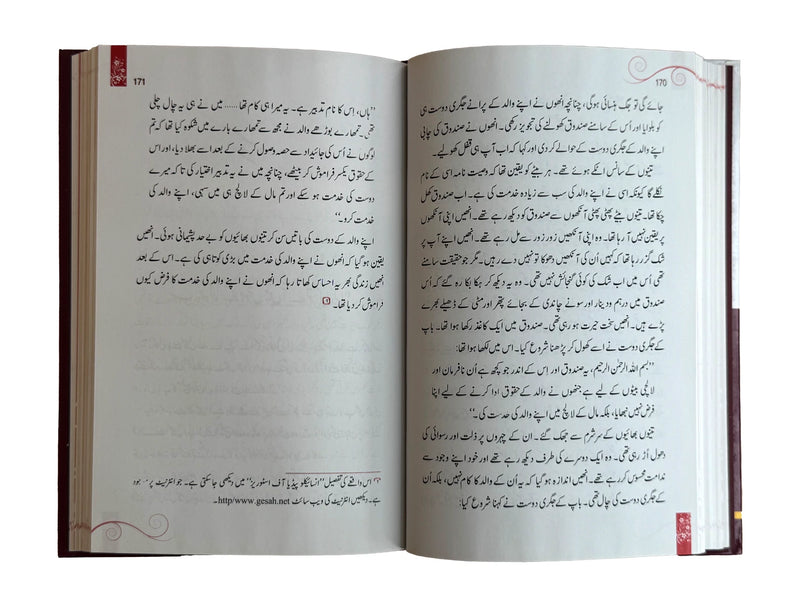 170
جائے گی تو جگ ہنسائی ہوگی، چنانچہ انھوں نے اپنے والد کے پرانے جگری دوست ہی
کو بلوایا اور اُس کے سامنے صندوق کھولنے کی تجویز رکھی۔ انھوں نے صندوق کی چابی
اپنے والد کے جگری دوست کے حوالے کر دی اور کہا کہ اب آپ ہی قفل کھولیے۔
تینوں کے سانس اٹکے ہوئے تھے۔ ہر بیٹے کو یقین تھا کہ وصیت نامہ اسی کے نام
نکلے گا کیونکہ اسی نے اپنے والد کی سب سے زیادہ خدمت کی ہے۔ اب صندوق کھل
چکا تھا۔ تینوں بیٹے پھٹی پھٹی آنکھوں سے صندوق کو دیکھ رہے تھے۔ انھیں اپنی آنکھوں
پر یقین نہیں آ رہا تھا۔ وہ اپنی آنکھیں زور زور سے مل رہے تھے۔ انھیں اپنے آپ پر
شک گزر رہا تھا کہ کہیں اُن کی آنکھیں دھوکا تو نہیں دے رہیں۔ مگر جو حقیقت سامنے
تھی اُس میں اب شک کی کوئی گنجائش نہیں تھی۔ وہ یہ دیکھ کر ہکا بکا رہ گئے کہ اُس
صندوق میں درہم و دینار اور سونے چاندی کے بجائے پتھر اور مٹی کے ڈھیلے بھرے
پڑے ہیں۔ انھیں سخت حیرت ہو رہی تھی۔ صندوق میں ایک کاغذ رکھا ہوا تھا۔ باپ
کے جگری دوست نے اسے کھول کر پڑھنا شروع کیا۔ اس میں لکھا ہوا تھا:
”بسم اللہ الرحمٰن الرحیم، یہ صندوق اور اِس کے اندر جو کچھ ہے اُن نافرمان اور
لالچی بیٹوں کے لیے ہے جنھوں نے والد کے حقوق ادا کرنے کے لیے اپنا
فرض نہیں نبھایا، بلکہ مال کے لالچ میں اپنے والد کی خدمت کی۔“
تینوں بھائیوں کے سر شرم سے جھک گئے۔ ان کے چہروں پر ذلت اور رسوائی کی
دھول اُڑ رہی تھی۔ وہ ایک دوسرے کی طرف دیکھ رہے تھے اور خود اپنے وجود سے
ندامت محسوس کر رہے تھے۔ انھیں اندازہ ہو گیا کہ یہ اُن کے والد کا کام نہیں، بلکہ اُن
کے جگری دوست کی چال تھی۔ باپ کے جگری دوست نے کہنا شروع کیا:
171
”ہاں، اِس کا نام تدبیر ہے۔ یہ میرا ہی کام تھا...... میں نے ہی یہ چال چلی
تھی۔ تمھارے بوڑھے والد نے مجھ سے تمھارے بارے میں شکوہ کیا تھا کہ تم
لوگوں نے اُس کی جائیداد سے حصہ وصول کرنے کے بعد اسے بھلا دیا، اور اس
کے حقوق یکسر فراموش کر بیٹھے، چنانچہ میں نے یہ تدبیر اختیار کی تا کہ میرے
دوست کی خدمت ہو سکے اور تم مال کے لالچ ہی میں سہی، اپنے والد کی
خدمت کرو۔“
اپنے والد کے دوست کی باتیں سن کر تینوں بھائیوں کو بے حد پشیمانی ہوئی۔ انھیں
یقین ہو گیا کہ انھوں نے اپنے والد کی خدمت میں بڑی کوتاہی کی ہے۔ اس کے بعد
انھیں زندگی بھر یہ احساس کھاتا رہا کہ انھوں نے اپنے والد کی خدمت کا فرض کیوں
فراموش کر دیا تھا۔
اس واقعے کی تفصیل ”انسائیکلو پیڈیا آف اسٹوریز“ میں دیکھی جاسکتی ہے۔ جو انٹرنیٹ پر موجود
ہے۔ دیکھیں انٹرنیٹ کی ویب سائٹ http/www.gesah.net۔